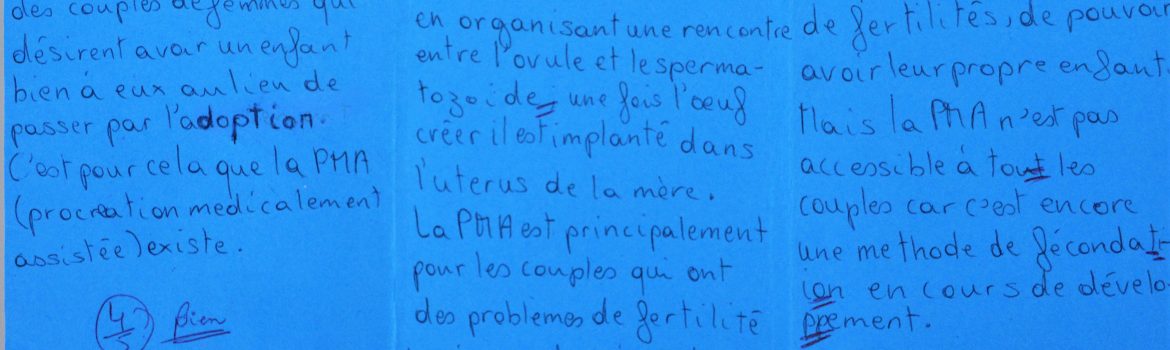 des couples de femmes qui
désirent avoir un enfant
bien à eux aulieu de
passer par l'adoption.
C'est pour cela que la PMA
(procreation medicalement
assistée) existe.
4/5 Bien
en organisant une rencontre
entre l'ovule et le sperma-
tozoide, une fois l'oeuf
créer il est implanté dans
l'uterus de la mère.
La PMA est principalement
pour les couples qui ont
des problèmes de fertilité
de fertilités, de pouvoir
avoir leur propre enfant.
Mais la PMA n'est pas
accessible à tout les
couples car c'est encore
une methode de fécondat-
ion en cours de dévelo-
ppement.